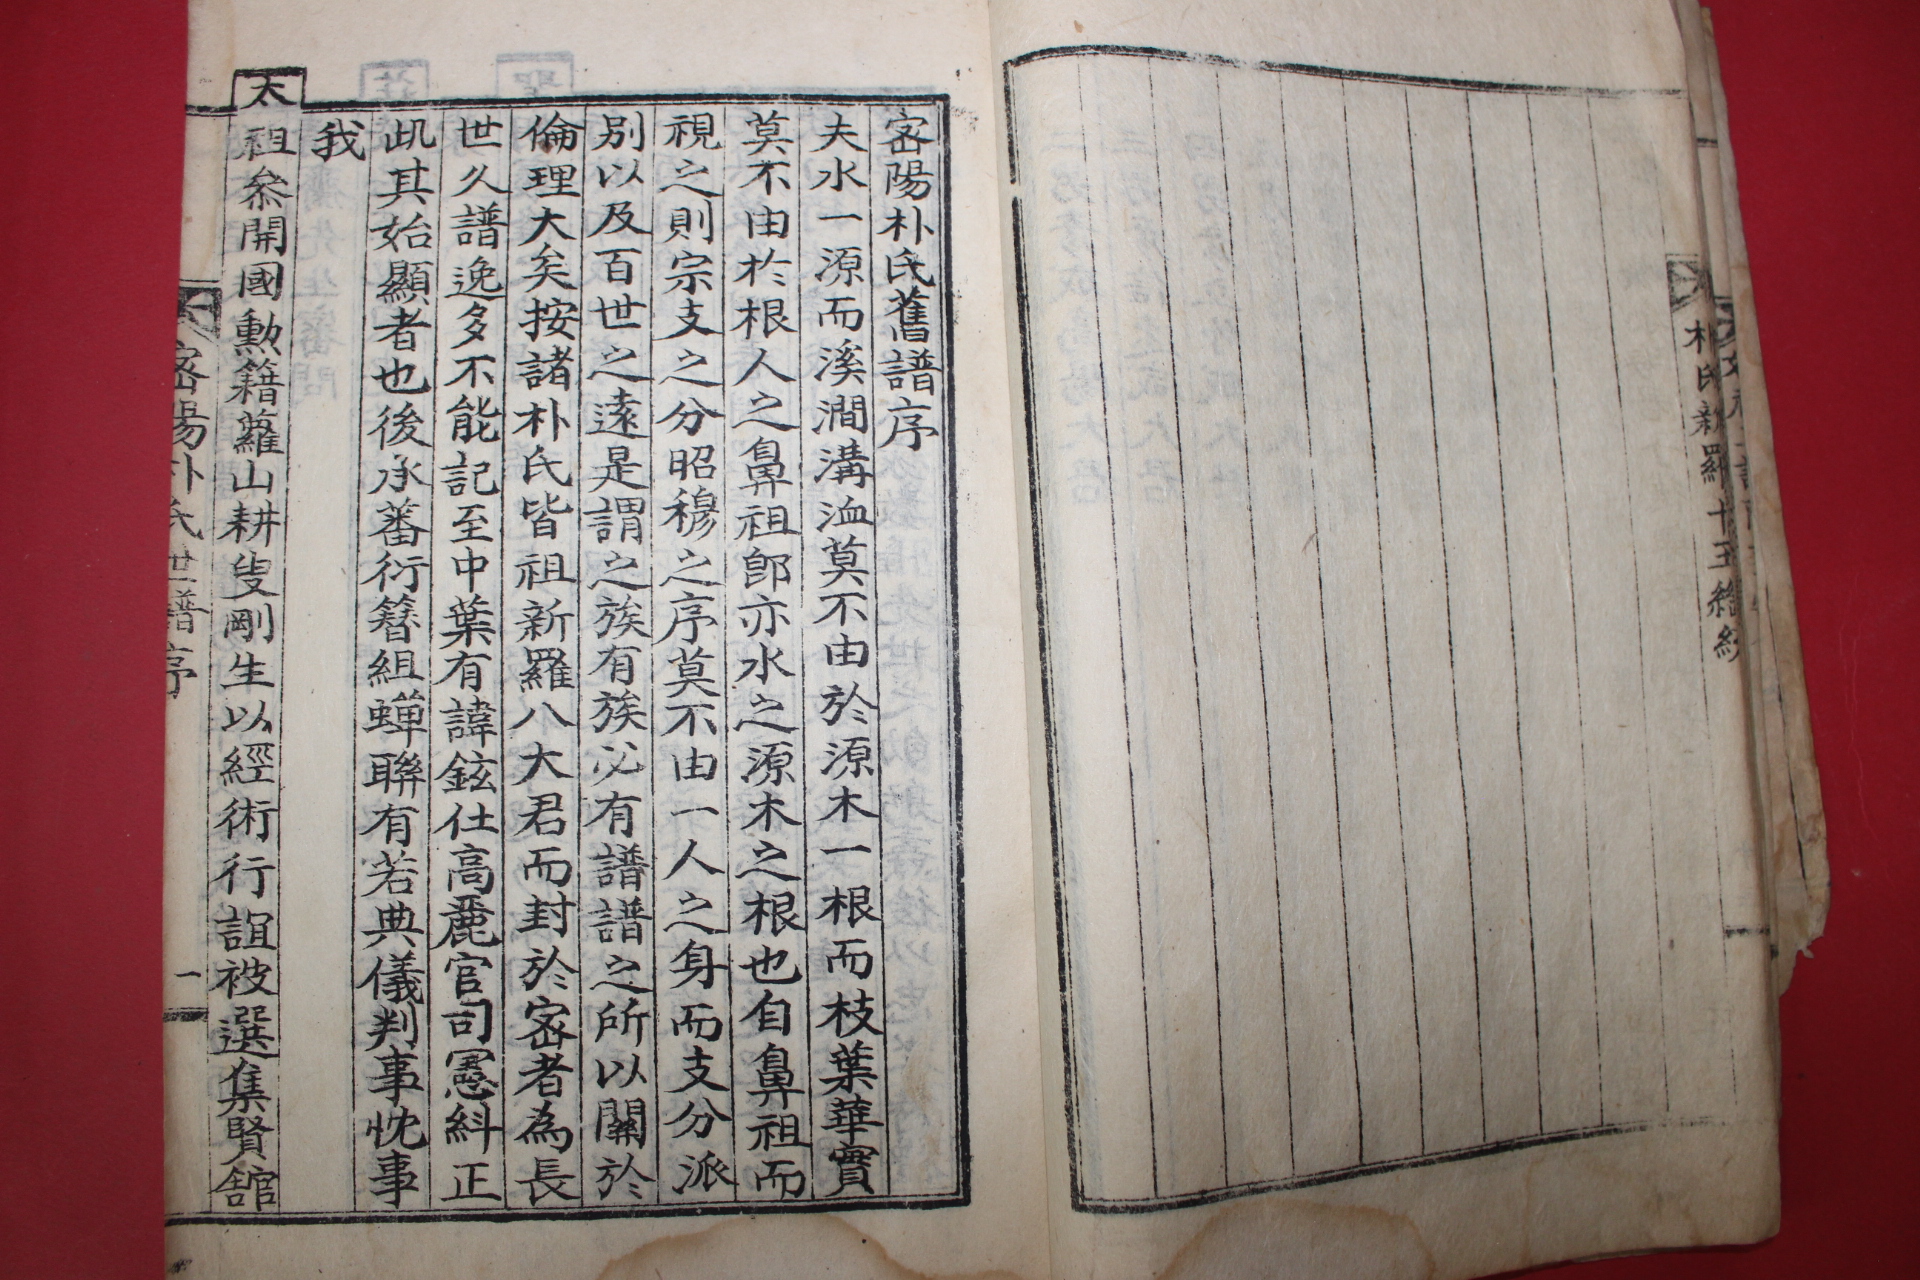 朴氏新羅十王
密陽朴氏舊譜序
夫水一源而溪澗溝洫莫不由於源木一根而枝葉華實
莫不由於根人之鼻祖卽亦水之源木之根也自鼻祖而
視之則宗支之分昭穆之序莫不由一人之身而支分派
別以及百世之遠是謂之族有族必有譜譜之所以關於
倫理大矣按諸朴氏皆祖新羅八大君而封於密者為長
世久譜逸多不能記至中葉有諱鉉仕高麗官司憲糾正
此其始顯者也後承蕃衍簪組蟬聯有若典儀判事忱事
我
太祖叅開國勳籍蘿山耕叟剛生以經術行誼被選集賢舘
密陽朴氏世譜序
一